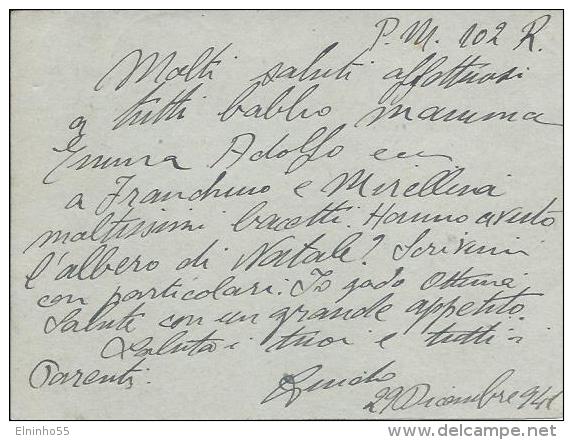 P.M. 102 R.
Molti saluti affettuosi
a tutti babbo mamma
Emma Adolfo ecc
a Franchino e Mirellina
moltissimi bacetti. Hanno avuto
l'albero di Natale? Scrivimi
con particolari. Io godo Ottima
Salute con un grande appetito.
Saluta i tuoi e tutti i
Parenti.
Guido
29 Dicembre 941
Elninho55
delcampe.net